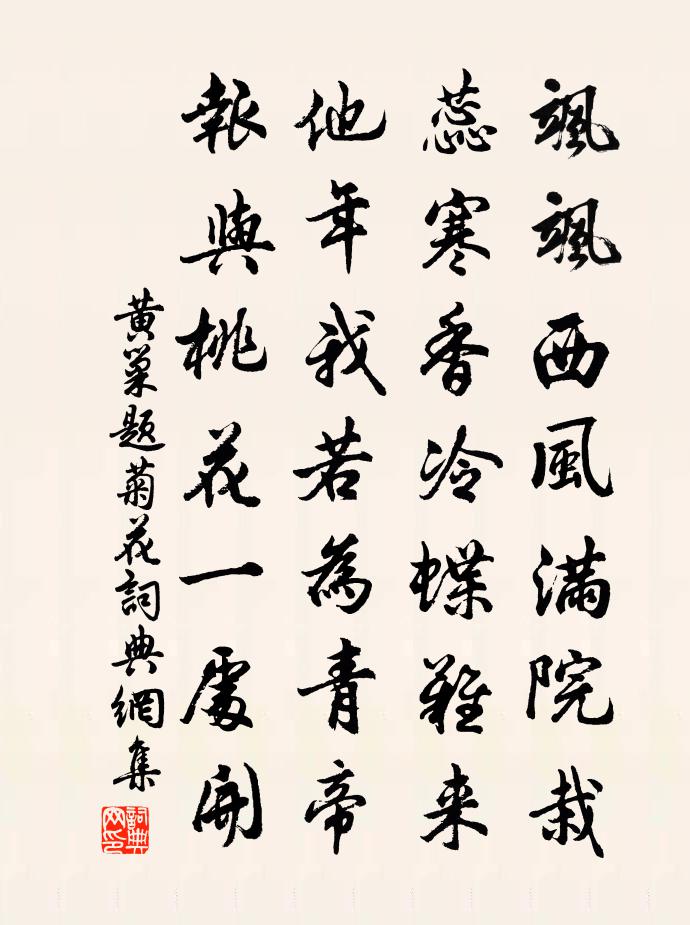 颯颯西風滿院栽
蕊寒香冷蝶難来
他年我若為青帝
報與桃花一處開
黄巢題菊花詞典網集
詞典網印